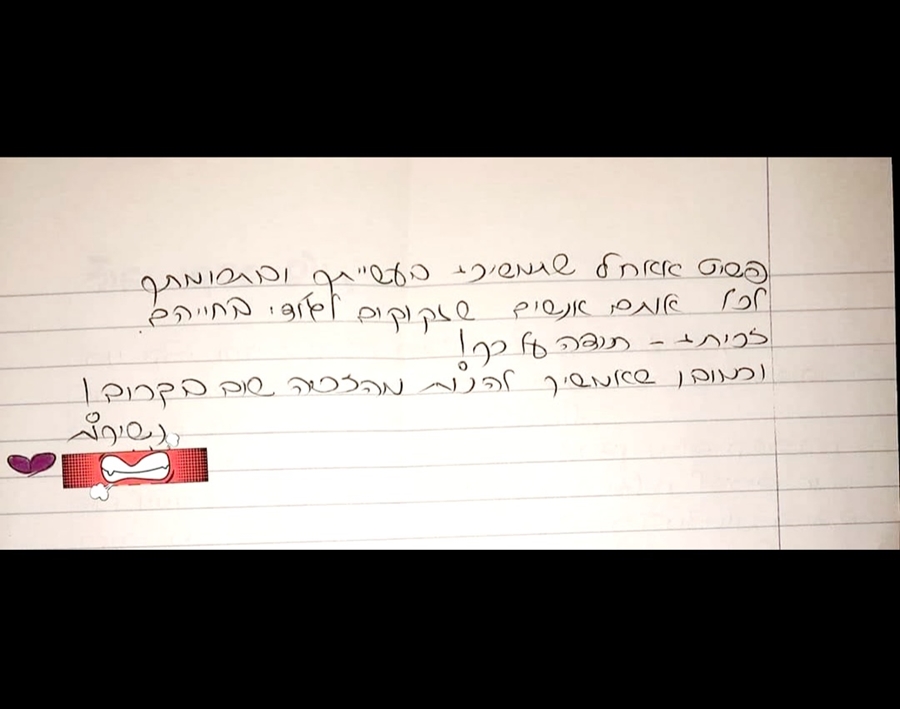 פשוט אאחל שתמשיכי בעשייתך ובתרומתך
לכל אותם אנשים שזקוקים לך בחייהם.
זכיתי - תודה על כך!
וכמובן שאמשיך להנות מהזכיה שוב בקרוב!
נשיקות